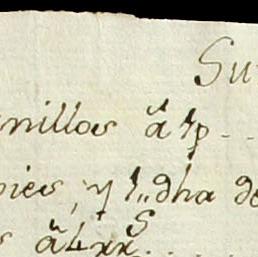 Su
nillos á 4p
pies, y 1,, dha de
s á 4 xx^s